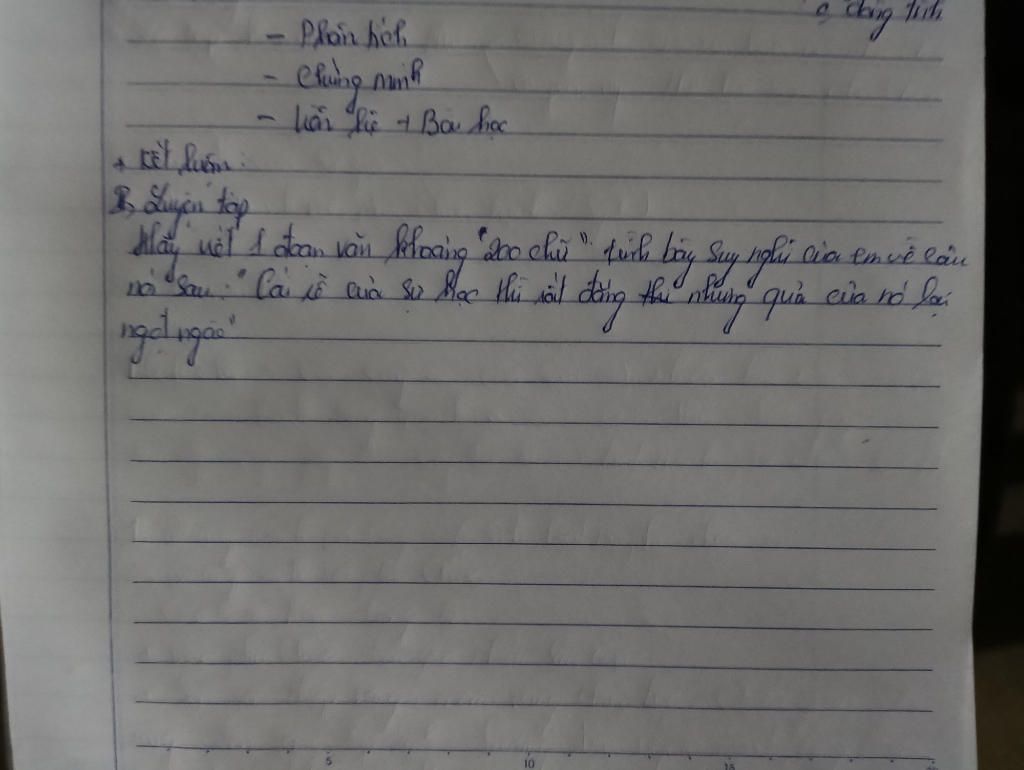 đồng tình
- Phân tích
- Chứng minh
- Liên hệ + Bài học
+ Kết luận:
Luyện tập
Hãy viết 1 đoạn văn khoảng "200 chữ" trình bày suy nghĩ của em về câu
nói sau: "Cái rễ của sự học thì rất đắng thì những quả của nó lại
ngọt ngào"
5 10 15